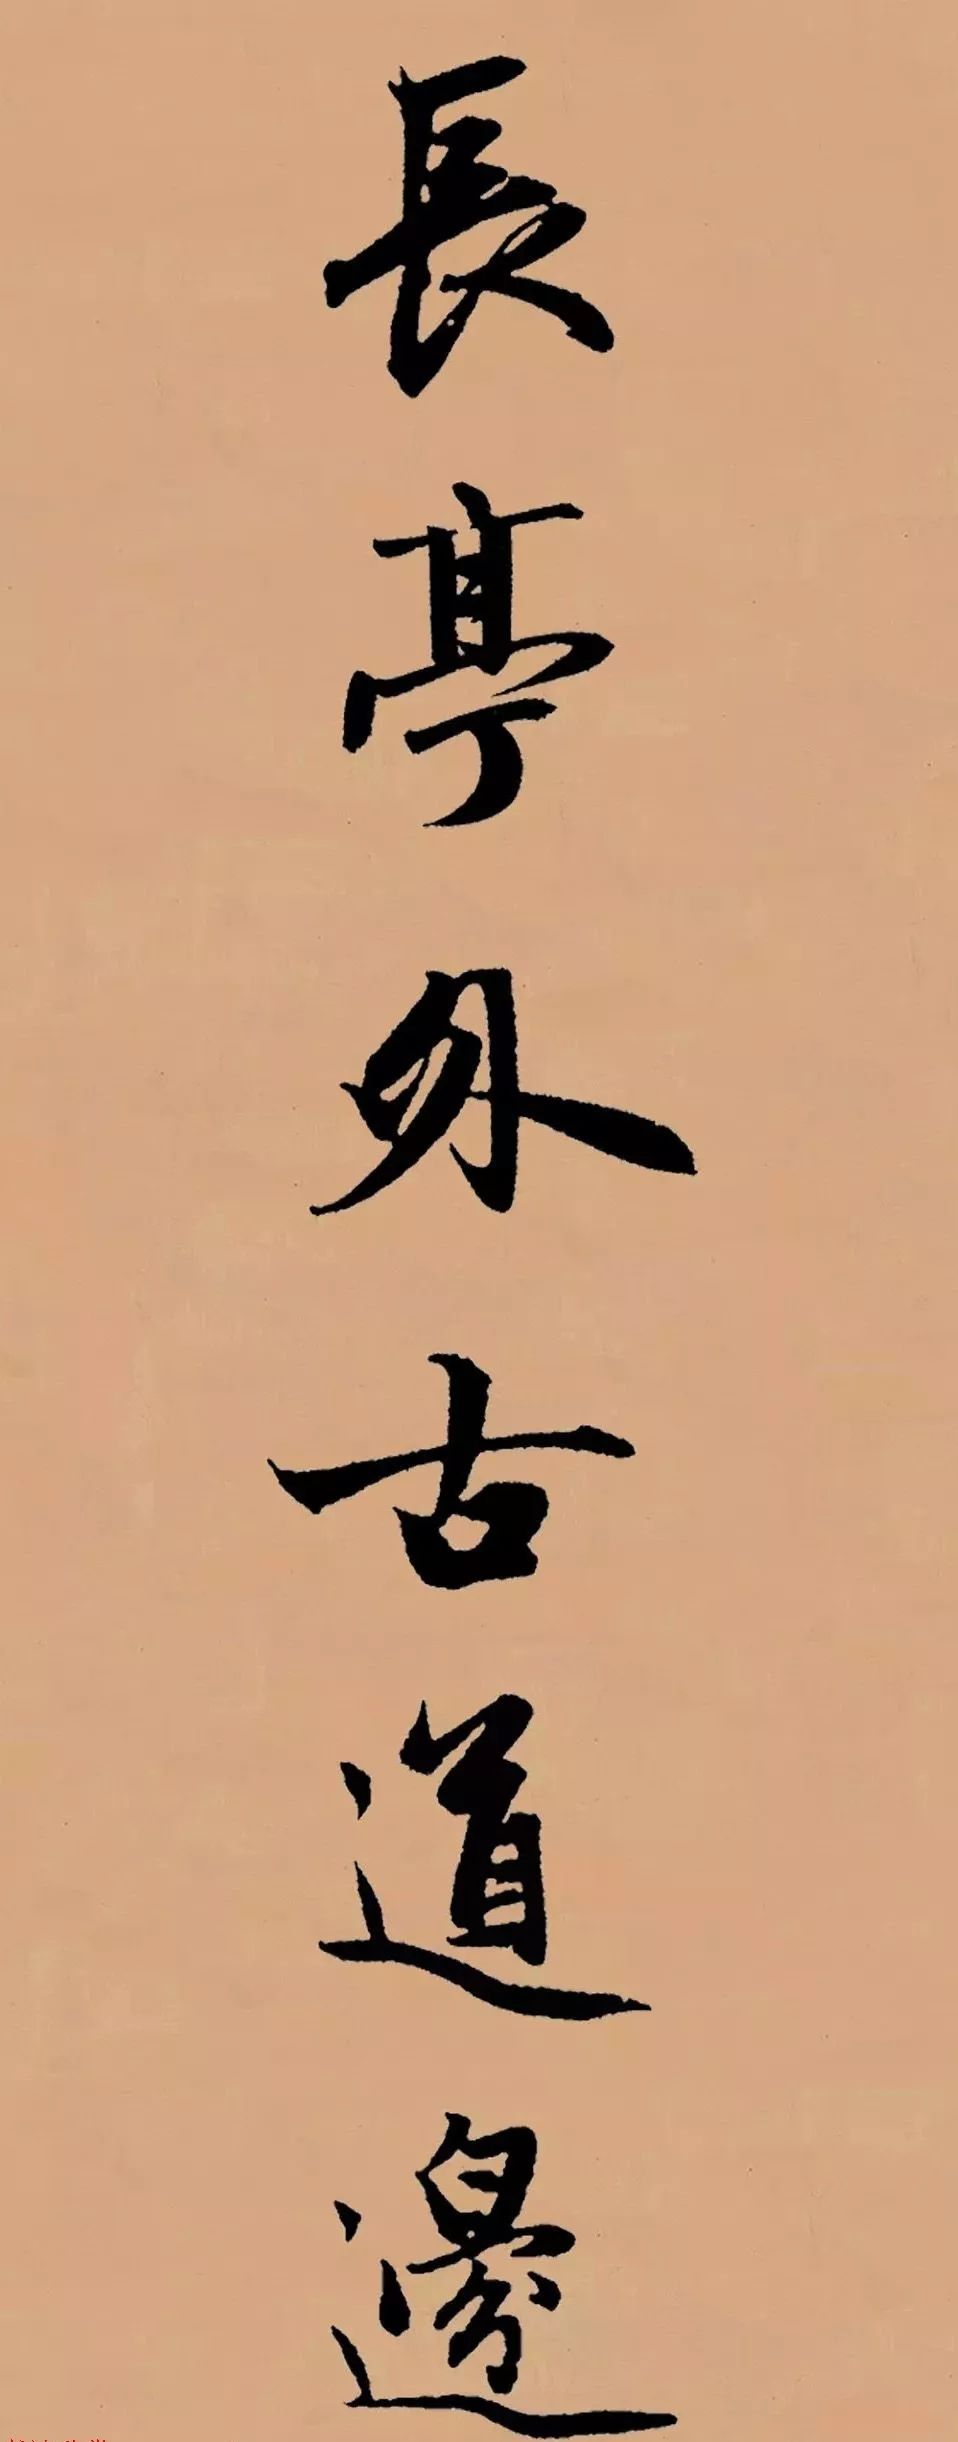 長亭外古道邊